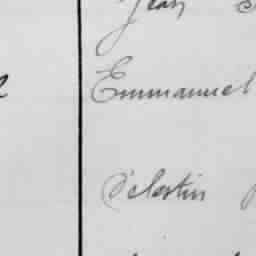 Jean
Emmanuel
Célestin